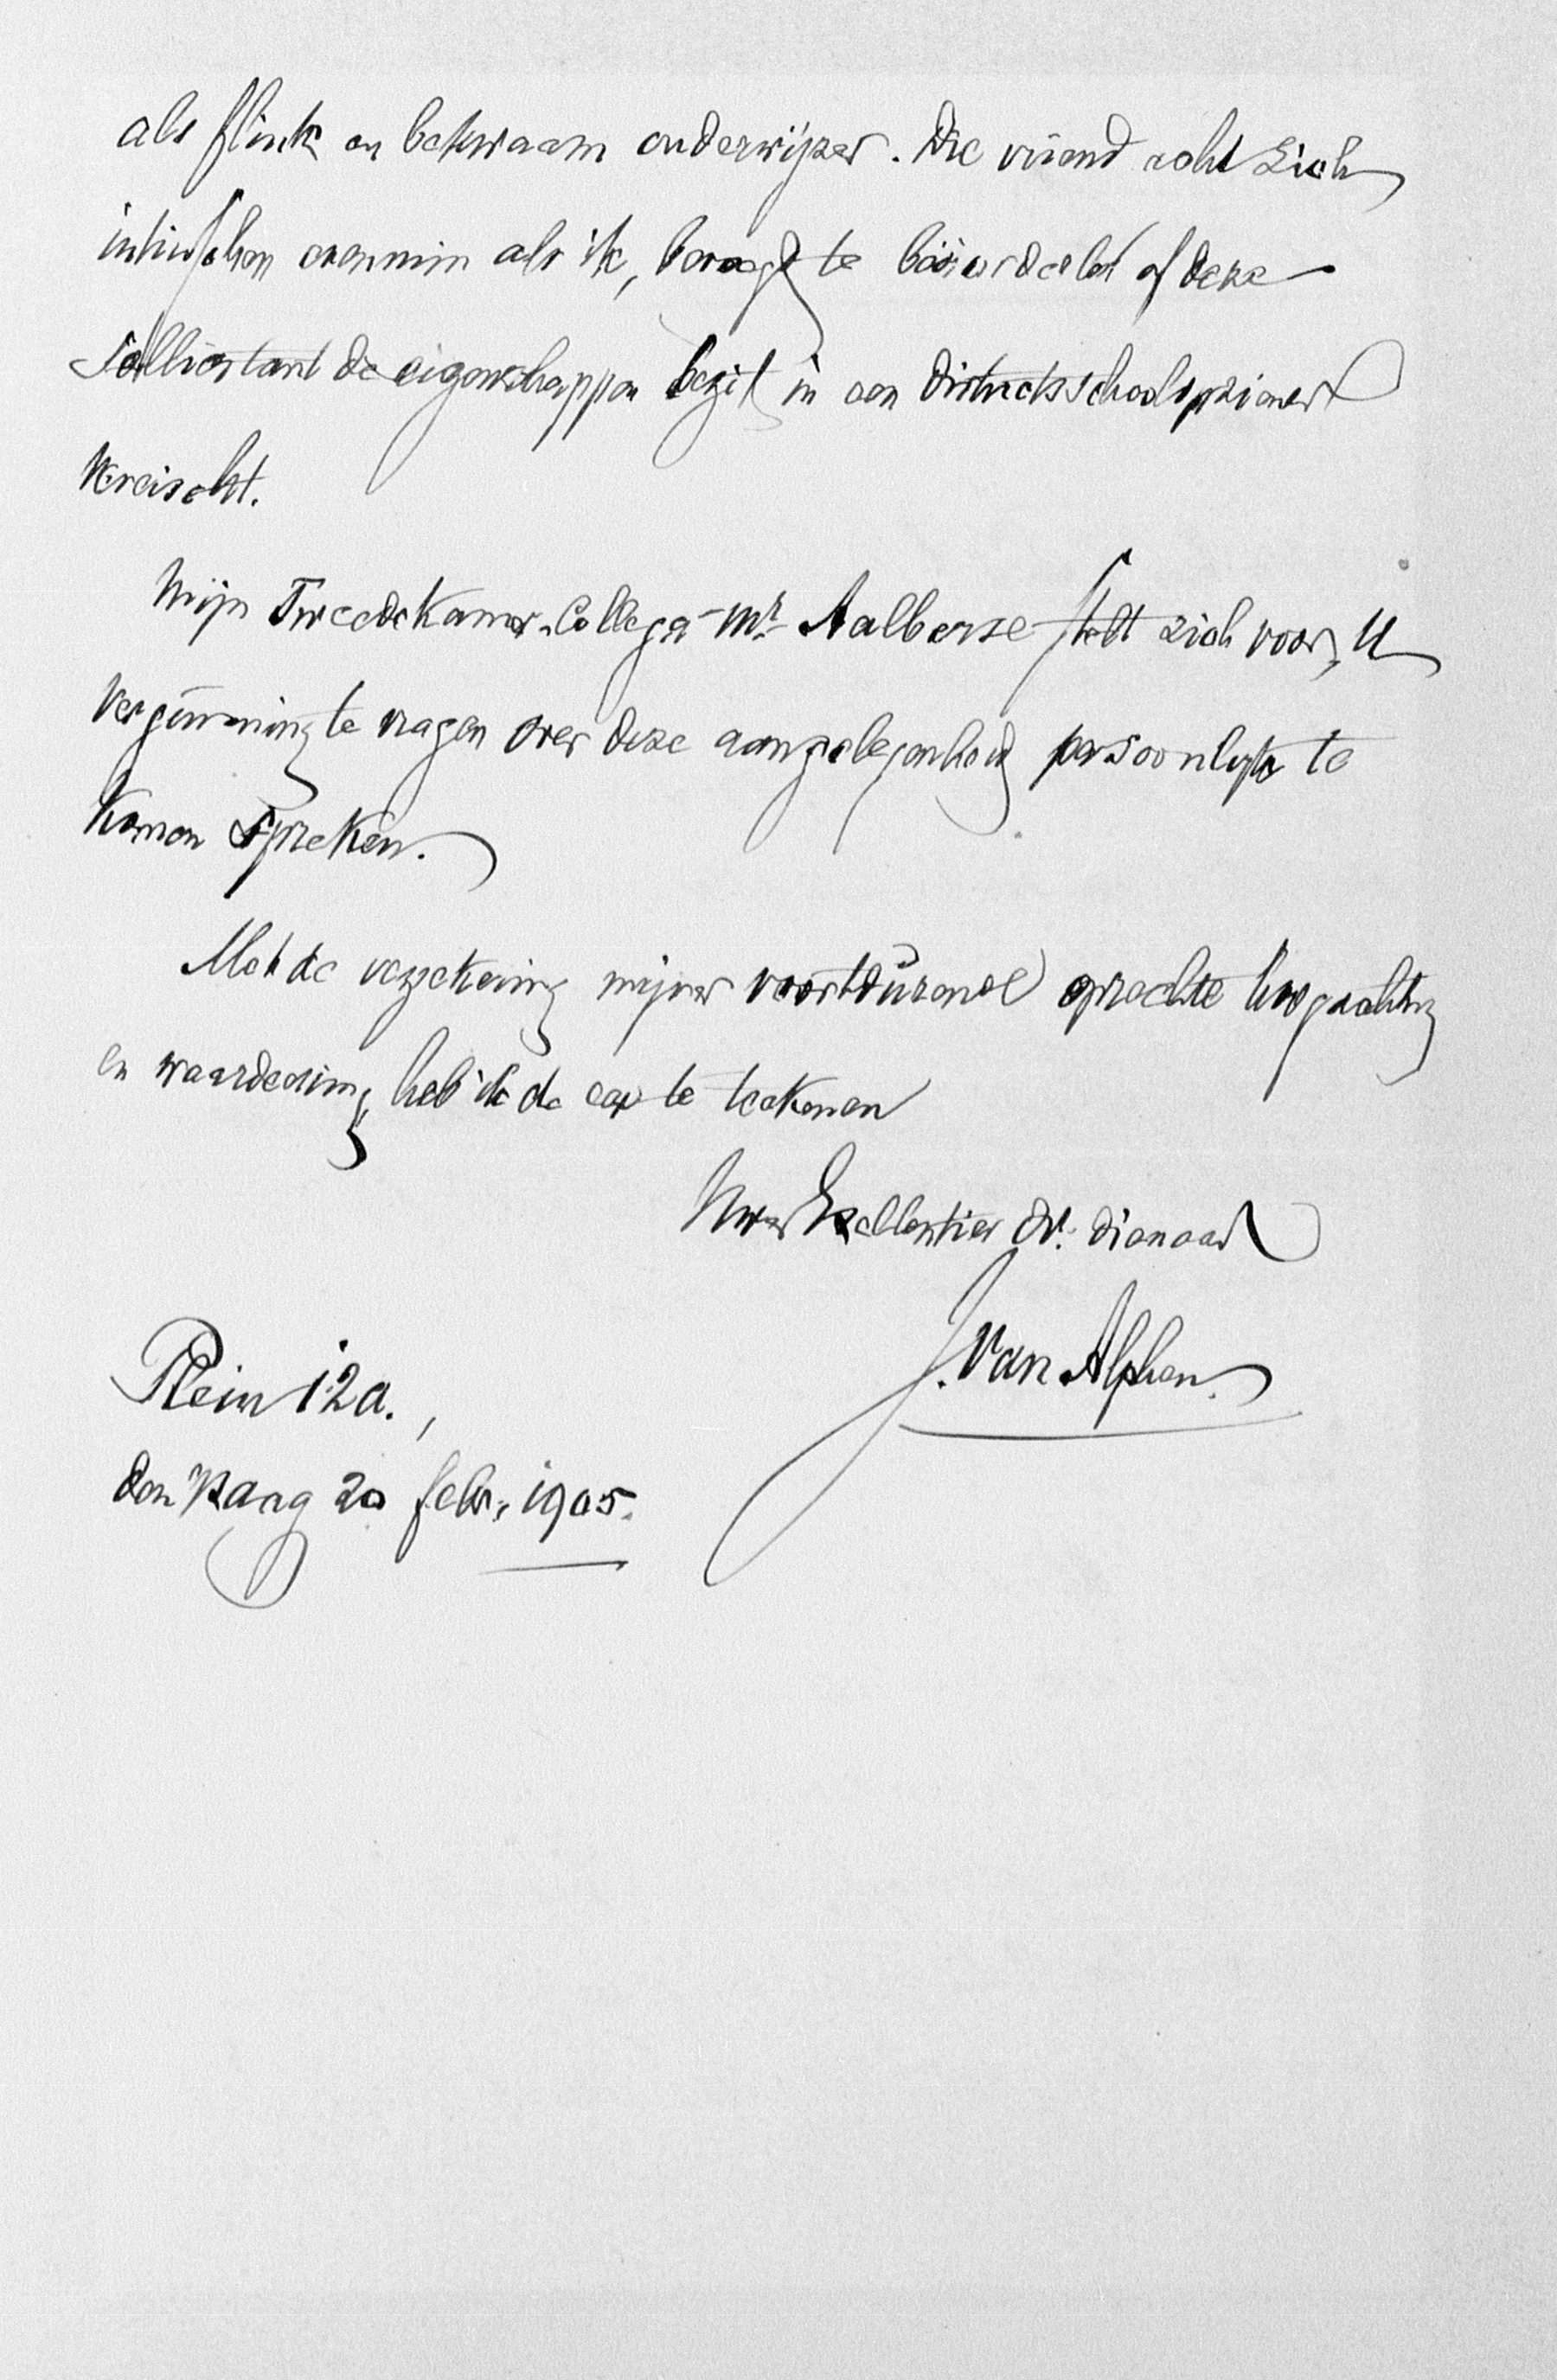 als flink en bekwaam onderwijzer. Die vriend acht zich
intusschen evenmin als ik, bevoegd te beöordeelen of deze
sollicitant de eigenschappen bezit in een districtsschoolopziener
vereischt.
Mijn Tweede Kamer-Collega Mr. Aalberse stelt zich voor, U
vergunning te vragen over deze aangelegenheid persoonlijk te
komen spreken.
Met de verzekering mijner voortdurende oprechte hoogachting
en waardeering heb ik de eer te teekenen
Uwer Excellentier Dr. dienaar
J. van Alphen.
Plein 12a.,
den Haag 20 febr. 1905.